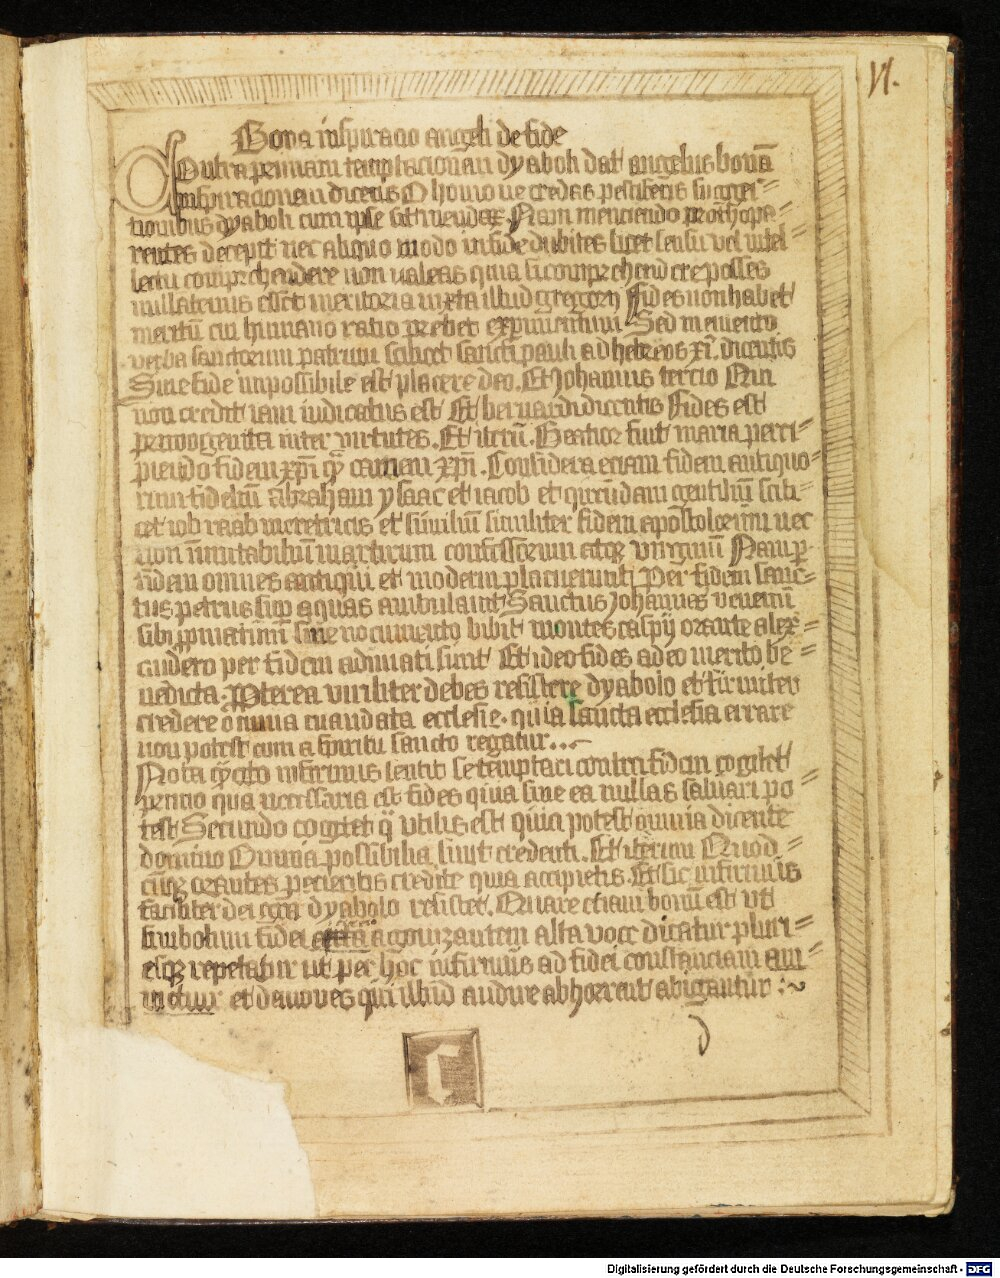 VI.
Bona inspiracio angeli de fide
Contra primam temptacionem dyaboli dat angelus bonā
inspiracionem dicens O homo ne credas pestiferis sugges=
tionibus dyaboli cum ipse sit mendax Nam menciendo prothopa=
rentes decepit nec aliquo modo in fide dubites licet sensu vel intel=
lectu comprehendere non valeas quia si comprehendere posses
nullatenus esset meritoria iuxta illud gregorij Fides non habet
meritū cui humano ratio prebet experimentum Sed memento
verba sanctorum patrum scilicet sancti pauli ad hebreos xi. dicentis
Sine fide impossibile est placere deo. Et Johannis tercio Qui
non credit iam iudicatus est Et bernardi dicentis Fides est
primogenita inter virtutes. Et iterū. Beatior fuit maria perci=
piendo fidem xp̄i q̄ȝ carnem xp̄i. Considera eciam fidem antiquo=
rum fideliū abraham ysaac et iacob et quorūdam gentiliū scili=
cet iob raab meretricis et similiū similiter fidem apostolorum nec
non īmutabiliū martirum confessorum atqȝ virginū Nam p̱
fidem omnes antiqui et moderni placuerunt Per fidem sanc=
tus petrus sup̱ aquas ambulavit Sanctus Johannes venenū
sibi p̱pinatum sine nocumento bibit montes caspij orante alex=
andero per fidem adunati sunt Et ideo fides a deo merito be=
nedicta. Pterea viriliter debes resistere dyabolo et firmiter
credere omnia mandata ecclesie. quia sancta ecclesia errare
non potest cum a spiritu sancto regatur...
Nota q̄ cito infirmus sentit se temptari contra fidem cogitet
primo qua necessaria est fides quia sine ea nullus salvari po=
test Secundo cogitet q̄ utilis est quia potest omnia dicente
domino Omnia possibilia sunt credenti. Et iterum Quod=
cūqȝ orantes pecieritis credite quia accipietis. Et sic infirmus
faciliter dei gr̄a dyabolo resistet. Quare etiam bonū est ut
simbolum fidei circa agonizantem alta voce dicatur pluri=
esqȝ repetatur ut per hoc infirmus ad fidei constanciam ani=
metur et demones qui illud audire abhorrent abigantur :~
C